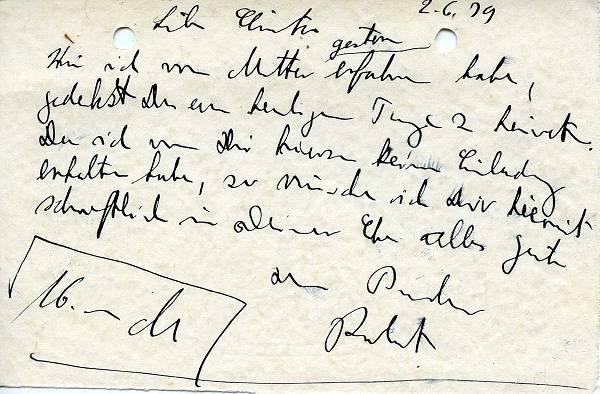 2.6.79
gestern
Wie ich von Mutter erfahren habe,
gedenkst Du am heutigen Tage zu heiraten.
Da ich von Dir hierzu keine Einladung
erhalten habe, so wünsche ich Dir hiermit
schriftlich in Deiner Ehe alles gute
Dein Bruder
Robert